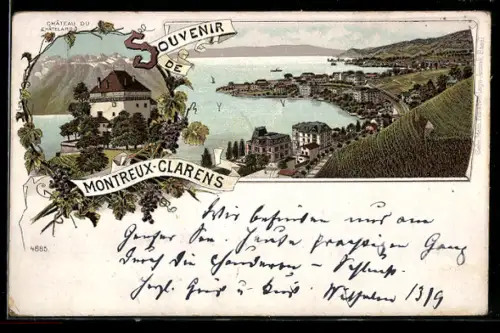 CHÂTEAU DU
CHÂTELARD
SOUVENIR
DE
MONTREUX-CLARENS
4885.
Wir befinden uns am
Genfer See. Heute prachtigen Gang
durch die Chauderon - Schlucht.
Herzl. Gruss u. Kuss. Wilhelm 13/9